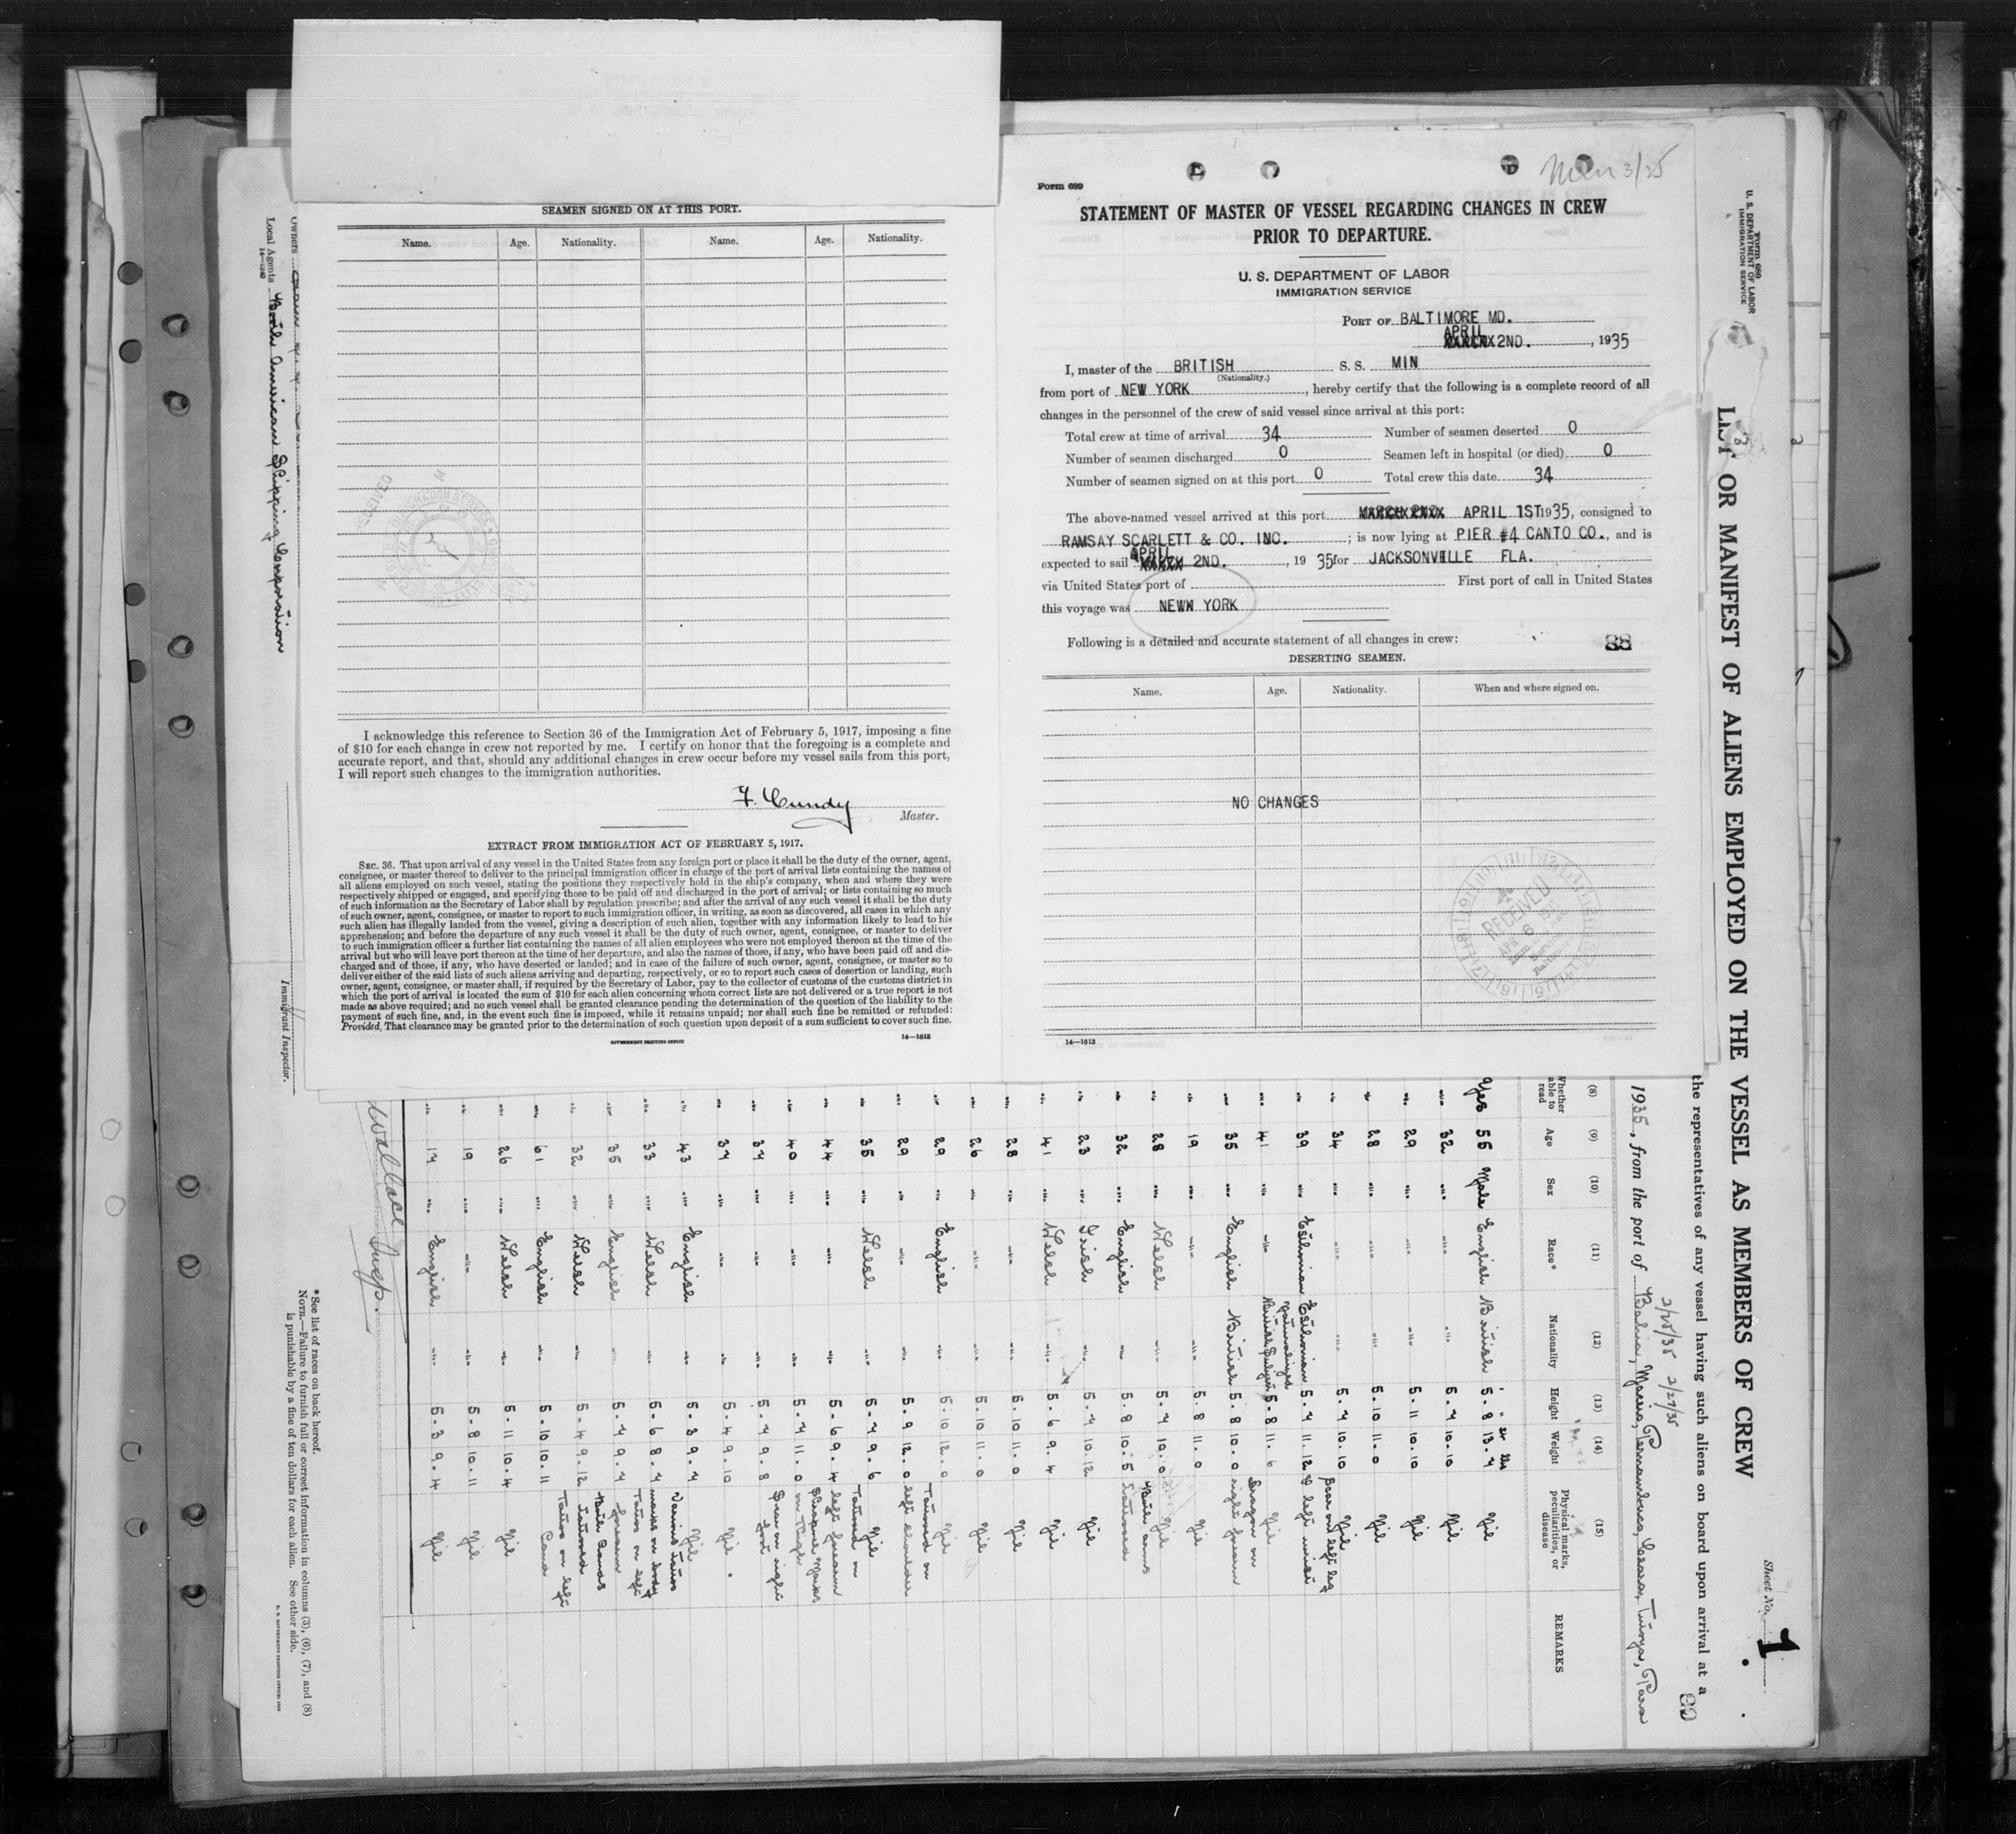 SEAMEN SIGNED ON AT THIS PORT.
Name. Age. Nationality. Name. Age. Nationality.
I acknowledge this reference to Section 36 of the Immigration Act of February 5, 1917, imposing a fine
of $10 for each change in crew not reported by me. I certify on honor that the foregoing is a complete and
accurate report, and that, should any additional changes in crew occur before my vessel sails from this port,
I will report such changes to the immigration authorities.
F. Cundy
Master.
EXTRACT FROM IMMIGRATION ACT OF FEBRUARY 5, 1917.
SEC. 36. That upon arrival of any vessel in the United States from any foreign port or place it shall be the duty of the owner, agent,
consignee, or master thereof to deliver to the principal immigration officer in charge of the port of arrival lists containing the names of
all aliens employed on such vessel, stating the positions they respectively hold in the ship's company, when and where they were
respectively shipped or engaged, and specifying those to be paid off and discharged in the port of arrival; or lists containing so much
of such information as the Secretary of Labor shall by regulation prescribe; and after the arrival of any such vessel it shall be the duty
of such owner, agent, consignee, or master to report to such immigration officer, in writing, as soon as discovered, all cases in which any
such alien has illegally landed from the vessel, giving a description of such alien, together with any information likely to lead to his
apprehension; and before the departure of any such vessel it shall be the duty of such owner, agent, consignee, or master to deliver
to such immigration officer a further list containing the names of all alien employees who were not employed thereon at the time of the
arrival but who will leave port thereon at the time of her departure, and also the names of those, if any, who have been paid off and dis-
charged and of those, if any, who have deserted or landed; and in case of the failure of such owner, agent, consignee, or master so to
deliver either of the said lists of such aliens arriving and departing, respectively, or so to report such cases of desertion or landing, such
owner, agent, consignee, or master shall, if required by the Secretary of Labor, pay to the collector of customs of the customs district in
which the port of arrival is located the sum of $10 for each alien concerning whom correct lists are not delivered or a true report is not
made as above required; and no such vessel shall be granted clearance pending the determination of the question of the liability to the
payment of such fine, and, in the event such fine is imposed, while it remains unpaid; nor shall such fine be remitted or refunded:
Provided, That clearance may be granted prior to the determination of such question upon deposit of a sum sufficient to cover such fine.
GOVERNMENT PRINTING OFFICE 14—1613
Min 3/25
Form 689
STATEMENT OF MASTER OF VESSEL REGARDING CHANGES IN CREW
PRIOR TO DEPARTURE.
U. S. DEPARTMENT OF LABOR
IMMIGRATION SERVICE
PORT OF BALTIMORE MD.
APRIL
2ND. , 1935
I, master of the BRITISH S. S. MIN
(Nationality.)
from port of NEW YORK , hereby certify that the following is a complete record of all
changes in the personnel of the crew of said vessel since arrival at this port:
Total crew at time of arrival 34 Number of seamen deserted 0
Number of seamen discharged 0 Seamen left in hospital (or died) 0
Number of seamen signed on at this port 0 Total crew this date 34
The above-named vessel arrived at this port APRIL 1ST 1935, consigned to
RAMSAY SCARLETT & CO. INC. ; is now lying at PIER #4 CANTO CO., and is
APRIL
expected to sail 2ND. , 1935 for JACKSONVILLE FLA.
via United States port of First port of call in United States
this voyage was NEW YORK
Following is a detailed and accurate statement of all changes in crew:
88
DESERTING SEAMEN.
Name. Age. Nationality. When and where signed on.
NO CHANGES
RECEIVED
14—1613
Form 680
U. S. DEPARTMENT OF LABOR
IMMIGRATION SERVICE
LIST OR MANIFEST OF ALIENS EMPLOYED ON THE VESSEL AS MEMBERS OF CREW
Sheet No. 1
the representatives of any vessel having such aliens on board upon arrival at a
2/25/35 2/27/35
1935, from the port of Bahia, Maceio, Pernambuco, Ceara, Tutoya, Para
(8) (9) (10) (11) (12) (13) (14) (15)
Whether able to read Age Sex Race* Nationality Height Weight Physical marks, peculiarities, or disease REMARKS
Yes 55 Male English British 5-8 13-4 Nil
" 32 " " " 5-7 10-10 Nil
" 29 " " " 5-11 10-10 Nil
" 28 " " " 5-10 11-0 Nil
" 34 " " " 5-7 10-10 Nil
" 39 " Esthonian Esthonian 5-7 11-12 Scar on left leg & left wrist
" 41 " " naturalized British Subject 5-8 11-6 Nil
" 35 " English British 5-8 10-0 Dragon on right forearm
" 19 " " " 5-8 11-0 Nil
" 28 " Welsh " 5-7 10-0 Nil
" 32 " English " 5-8 10-5 Both arms tattooed
" 23 " Irish " 5-7 10-12 Nil
" 41 " Welsh " 5-6 9-4 Nil
" 28 " " " 5-10 11-0 Nil
" 26 " " " 5-10 11-0 Nil
" 29 " English " 5-10 12-0 Nil
" 29 " " " 5-9 12-0 Tattooed on left shoulder
" 35 " Welsh " 5-7 9-6 Nil
" 44 " " " 5-6 9-4 Tattooed on left forearm
" 40 " " " 5-7 11-0 Shrapnel marks on thigh
" 37 " " " 5-7 9-8 Scar on right foot
" 37 " " " 5-4 9-10 Nil
" 43 " English " 5-3 9-7 Nil
" 33 " Welsh " 5-6 8-7 Various tattoo marks on body
" 35 " English " 5-7 9-7 Tattoo on left forearm
" 32 " Welsh " 5-4 9-12 Both hands tattooed
" 61 " English " 5-10 10-11 Tattoo on left hand
" 26 " Welsh " 5-11 10-4 Nil
" 19 " " " 5-8 10-11 Nil
" 17 " English " 5-3 9-4 Nil
Wallace Insp.
*See list of races on back hereof.
NOTE.—Failure to furnish full or correct information in columns (3), (6), (7), and (8)
is punishable by a fine of ten dollars for each alien. See other side.
Owners
Local Agents Booth American Shipping Corporation
14—1240
Immigrant Inspector.